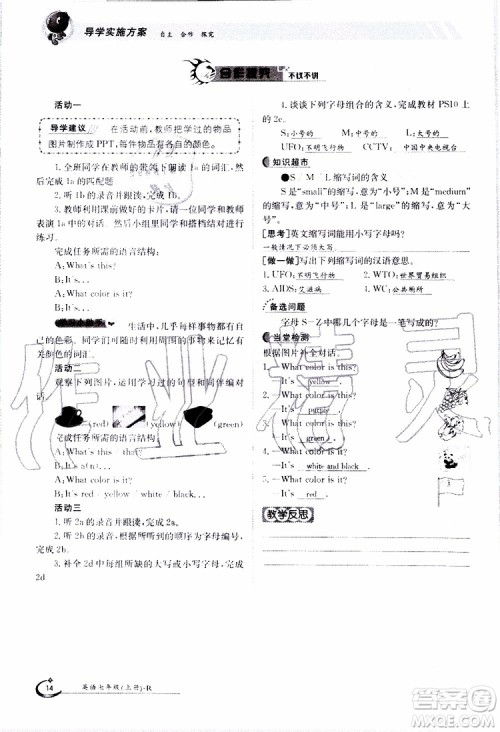 导学实施方案 自主 合作 探究
合作探究 不议不讲
活动一
导学建议 在活动前,教师把学过的物品
图片制作成 PPT,每件物品都有各自的颜色。
1. 全班同学在教师的带领下朗读 1a 的词汇,然
后完成 1a 的匹配题
2. 教师利用课前做好的卡片,请一位同学和教师
表演 1a 的对话。然后小组里同学拿图片进行会话
练习。
完成任务所需的语言结构:
A: What's this?
B: It's
A: What color is it?
B: It's
学习小助手 生活中,几乎每样事物都有自
己的色彩。只同颜色时用 What color 放在句首来引
导
活动二
观察下列图片,运用学过的句型和同伴编对
话
(red) (yellow) (green)
完成任务所需的语言结构:
A: What's this?
B: It's a(n)
A: What color is it?
B: It's red/yellow/black/white/green
活动三
1. 听 2a 的录音并跟读,完成 2b。
2. 听 2b 的录音并跟读,按顺序给字母编号,
完成 2b。
3. 补全 2d 中所缺的大写或小写字母,完成
2d
1. 谈谈下列字母组合的含义,完成教材 PS10 上
的 2e。
S: 小号的 M: 中号的 L: 大号的
UFO: 不明飞行物 CCTV: 中国中央电视台
知识超市
S/M/L 缩写词的含义
S 是"small"的缩写,意为"小号";M 是"medium"
的缩写,意为"中号";L 是"large"的缩写,意为"大号"。
[思考]英文缩写词能用小写字母吗?
一般情况下必须大写。
[做一做]写出下列缩写词的汉语意思。
1. UFO: 不明飞行物 2. WTO: 世界贸易组织
3. AIDS: 艾滋病 4. WC: 公共厕所
备选问题
字母 S－Z 中哪几个字母是一笔写成的?
当堂检测
根据图片补全对话。
1. —What color is it?
—It's yellow.
2. —What color is it?
—It's purple.
3. —What color is it?
—It's green.
4. —What color is it?
—It's white and black.
5. —What color is it?
—It's red and yellow.
教学反思
14 英语七年级(上册)-R